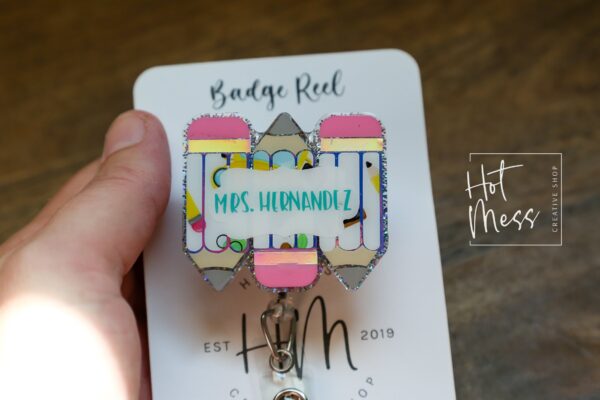 Badge Reel
MRS. HERNANDEZ
EST HM 2019
Hot
Mess
CREATIVE SHOP